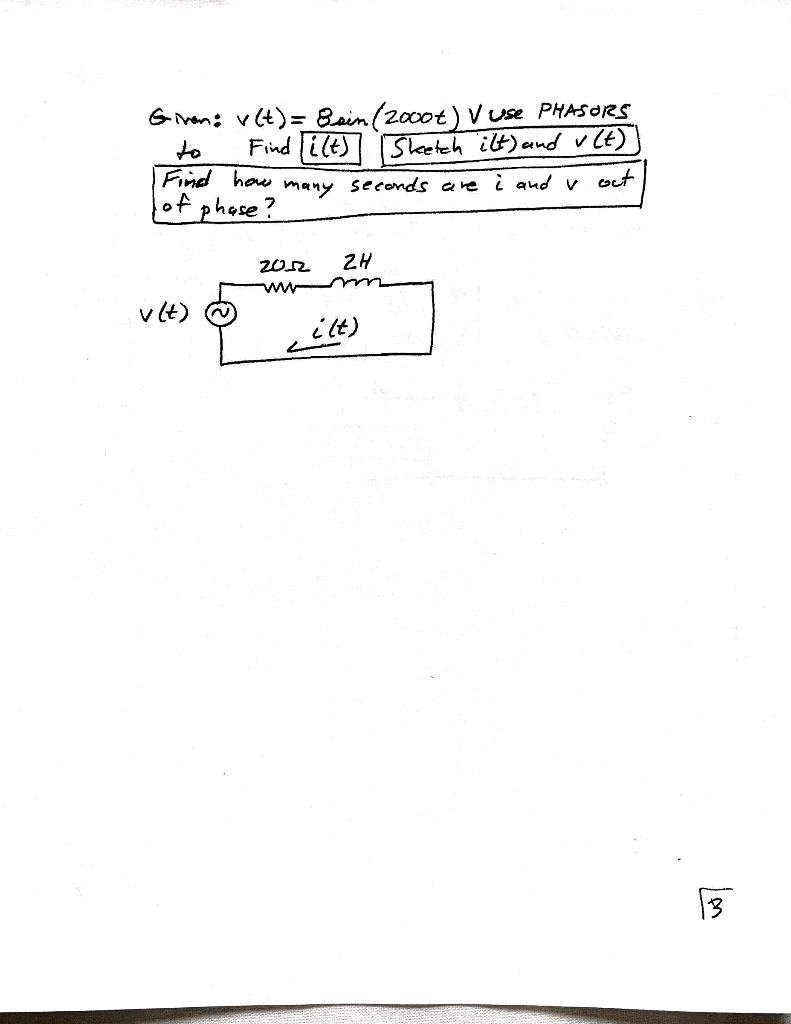 Given: v(t) = 8sin(2000t) V use PHASORS
to Find i(t) Sketch i(t) and v(t)
Find how many seconds are i and v out
of phase?
20Ω 2H
v(t)
i(t)
3